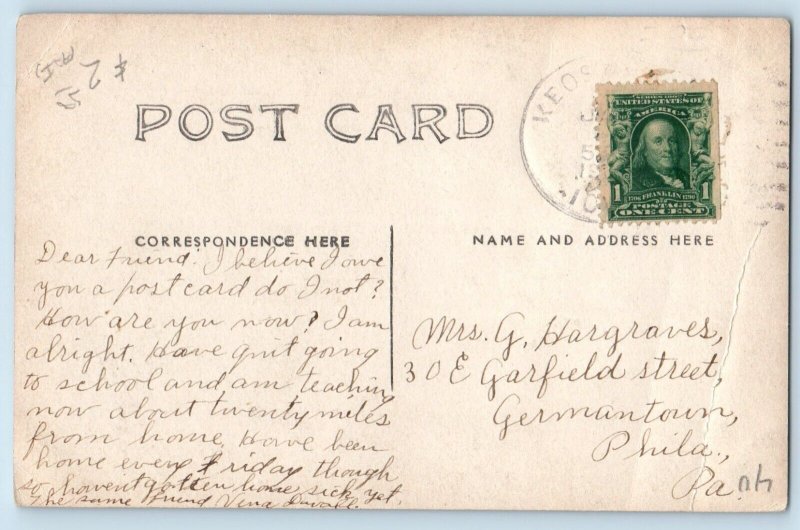 POST CARD
KEOS
SERIES 1902
UNITED STATES OF
AMERICA
1 1706 FRANKLIN 1790 1
POSTAGE
ONE CENT
CORRESPONDENCE HERE
Dear Friend: I believe I owe
you a post card do I not?
How are you now? I am
alright. Have quit going
to school and am teaching
now about twenty miles
from home. Have been
home every Friday though
so havent gotten home sick yet.
The same friend Vena Duvall.
NAME AND ADDRESS HERE
Mrs. G. Hargraves,
30 E Garfield street,
Germantown,
Phila.,
Pa.